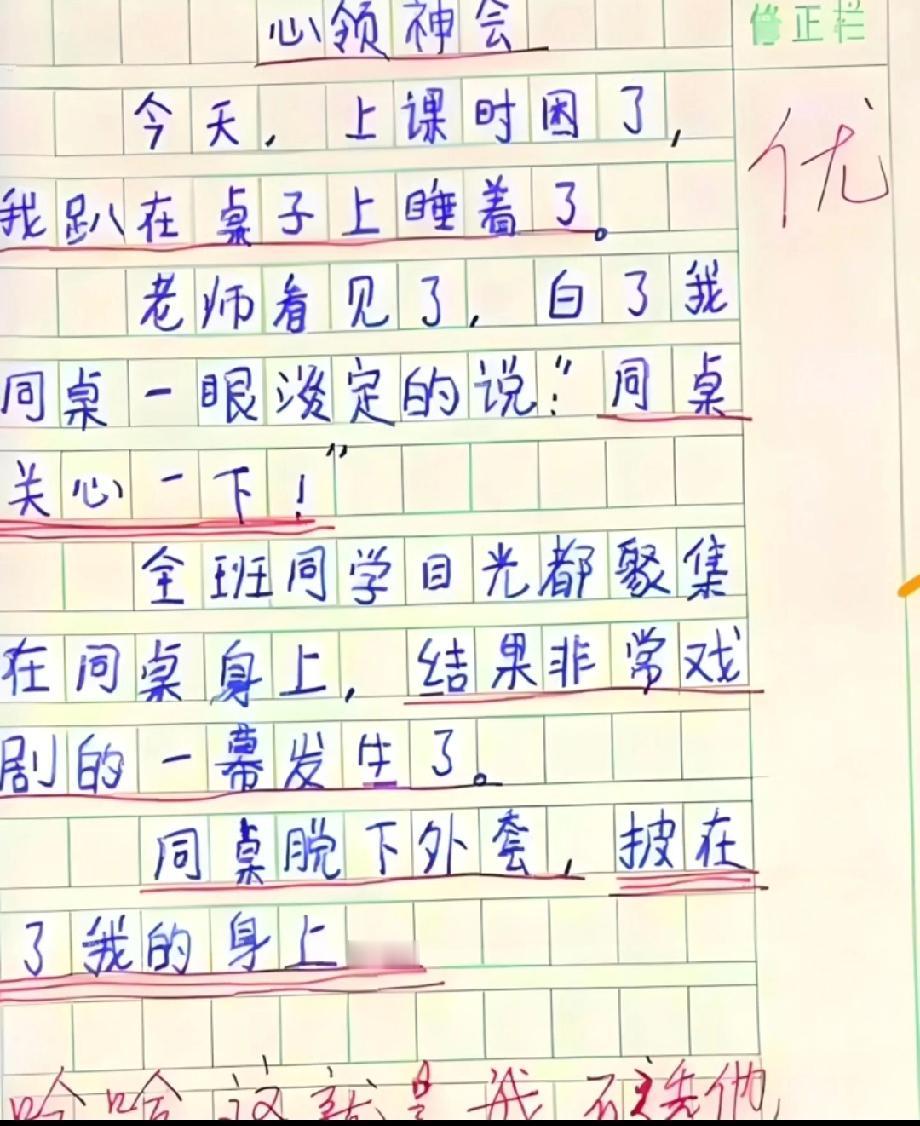 心领神会
修正栏
今天，上课时困了，
优
我趴在桌子上睡着了。
老师看见了，白了我
同桌一眼淡定的说：“同桌
关心一下！”
全班同学目光都聚集
在同桌身上，结果非常戏
剧的一幕发生了。
同桌脱下外套，披在
了我的身上
哈哈这就是我